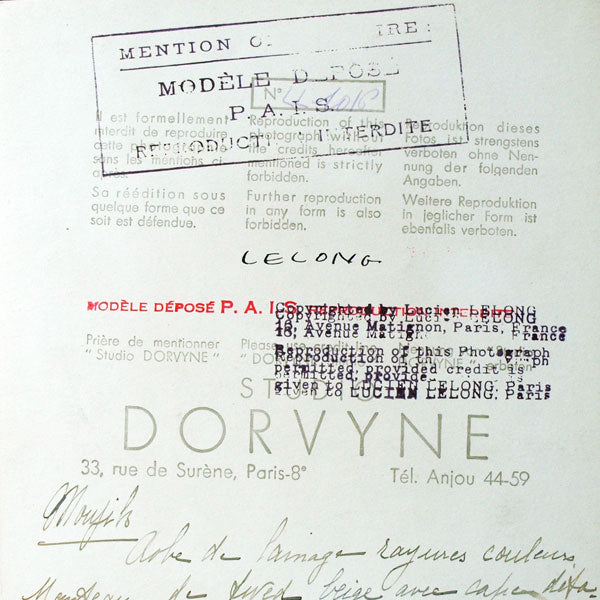 MENTION
MODÈLE DÉPOSÉ
P. A. I. S.
REPRODUCTION INTERDITE
N°
Il est formellement
interdit de reproduire
cette
sans les mentions ci-
Sa réédition sous
quelque forme que ce
soit est défendue.
Reproduction of this
photograph without
the credits hereafter
mentioned is strictly
forbidden.
Further reproduction
in any form is also
forbidden.
Reproduktion dieses
Fotos ist strengstens
verboten ohne Nen-
nung der folgenden
Angaben.
Weitere Reproduktion
in jeglicher Form ist
ebenfalls verboten.
LELONG
MODÈLE DÉPOSÉ P. A. I. S.
Copyrighted by Lucien LELONG
16, Avenue Matignon, Paris, France
Reproduction of this Photograph
permitted provided credit is
given to LUCIEN LELONG, Paris
Prière de mentionner
"Studio DORVYNE"
Please use credit line
STUDIO
DORVYNE
33, rue de Surène, Paris-8°
Tél. Anjou 44-59
Robe de lainage rayures couleurs
Manteau de tweed beige avec cape